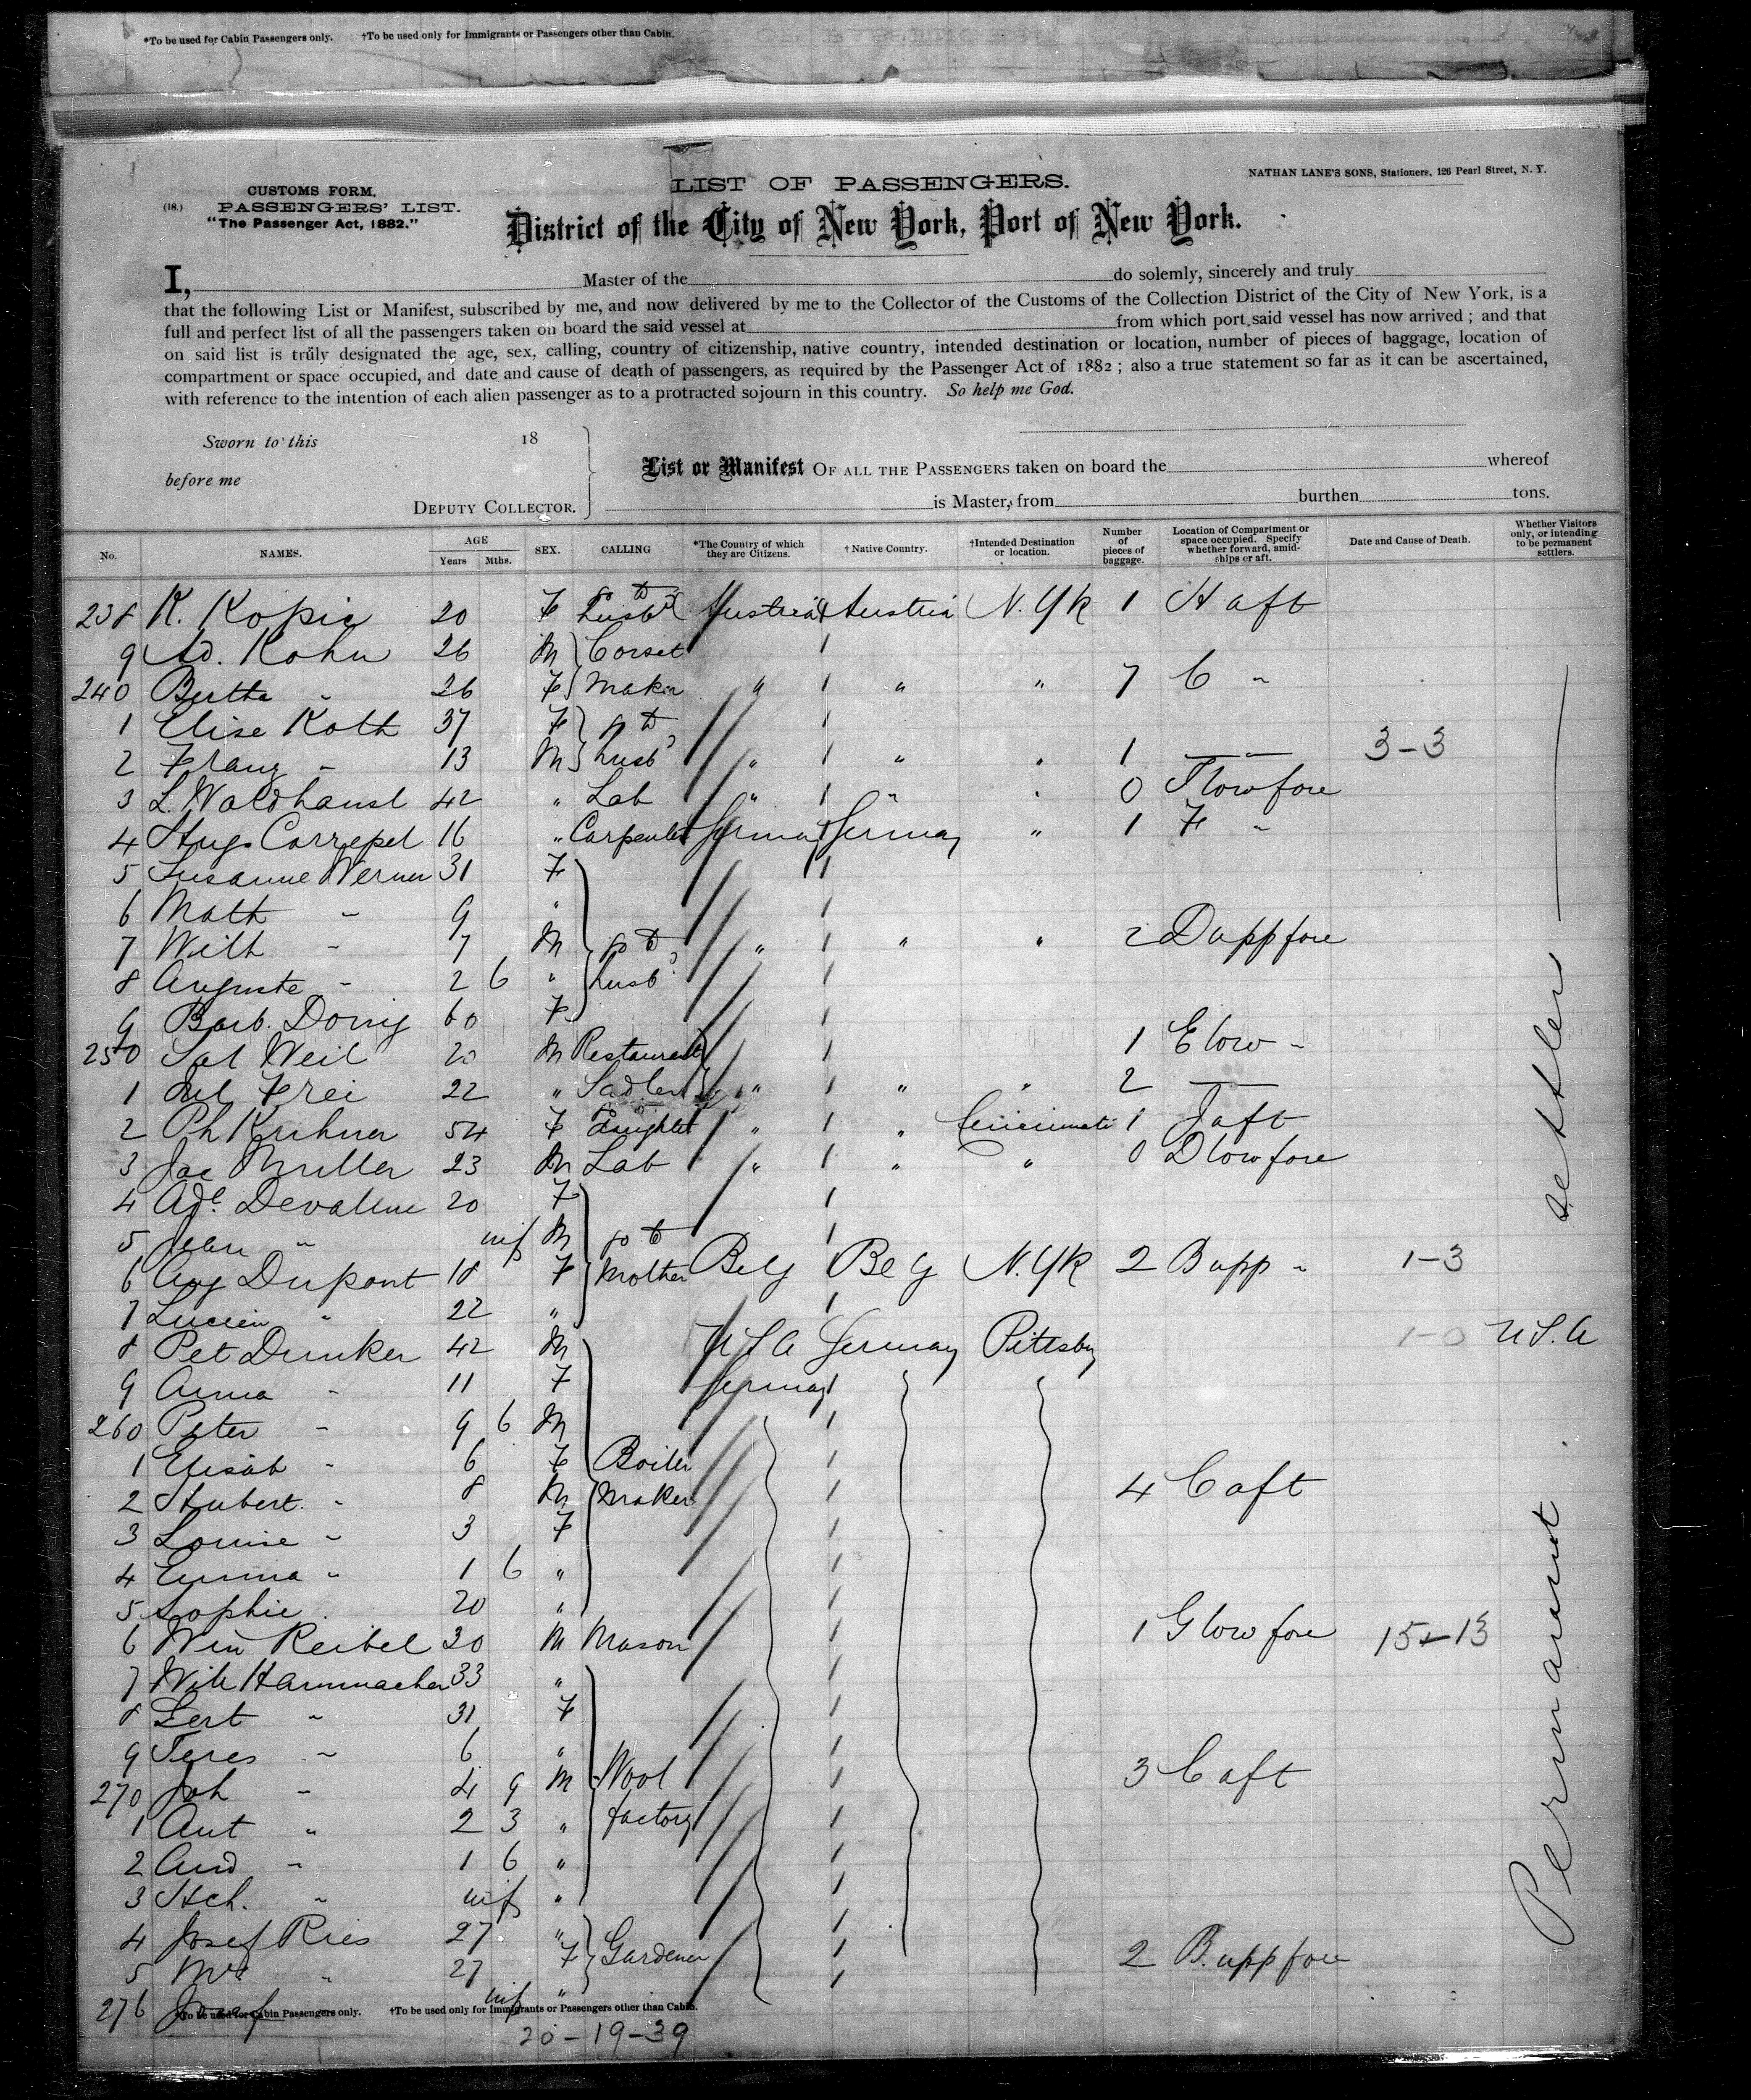 *To be used for Cabin Passengers only. †To be used only for Immigrants or Passengers other than Cabin.
NATHAN LANE'S SONS, Stationers, 126 Pearl Street, N. Y.
(18.) CUSTOMS FORM.
PASSENGERS' LIST.
"The Passenger Act, 1882."
LIST OF PASSENGERS.
District of the City of New York, Port of New York.
I, Master of the do solemly, sincerely and truly
that the following List or Manifest, subscribed by me, and now delivered by me to the Collector of the Customs of the Collection District of the City of New York, is a
full and perfect list of all the passengers taken on board the said vessel at from which port said vessel has now arrived; and that
on said list is truly designated the age, sex, calling, country of citizenship, native country, intended destination or location, number of pieces of baggage, location of
compartment or space occupied, and date and cause of death of passengers, as required by the Passenger Act of 1882; also a true statement so far as it can be ascertained,
with reference to the intention of each alien passenger as to a protracted sojourn in this country. So help me God.
Sworn to this 18
before me
DEPUTY COLLECTOR.
List or Manifest OF ALL THE PASSENGERS taken on board the whereof
is Master, from burthen tons.
No. NAMES. AGE Years Mths. SEX. CALLING *The Country of which they are Citizens. †Native Country. †Intended Destination or location. Number of pieces of baggage. Location of Compartment or space occupied. Specify whether forward, amidships or aft. Date and Cause of Death. Whether Visitors only, or intending to be permanent settlers.
238 K. Kopic 20 F to husbd Austria Austria N. Yk 1 H aft
9 Ad. Kohn 26 M Corset
240 Bertha " 26 F Maker " " " 7 C "
1 Elise Roth 37 F to
2 Franz " 13 M husb " " " 1 " 3-3
3 L. Waldhausl 42 " Lab " " " 0 F low fore
4 Hugo Carrepel 16 " Carpenter Germany Germany " 1 F "
5 Susanne Werner 31 F
6 Math " 9 "
7 Wilh " 7 M to " " " 2 D upp fore
8 Auguste " 2 6 " husb
9 Barb. Dorry 60 F
250 Sal Weil 20 M Restaurant 1 E low "
1 Jul Frei 22 " Sadler " " " 2 "
2 Ph Kuhner 54 F to daughter " " Cincinnati 1 J aft
3 Jac Muller 23 M Lab " " " 0 D low fore
4 Ade Devalem 20 F
5 Jean " inf M to
6 Aug Dupont 18 F Mother Belg Belg N. Yk 2 B upp " 1-3
7 Lucien " 22 "
8 Pet Dunker 42 M U S A Germany Pittsby 1-0 U S. A
9 Anna " 11 F Germay
260 Peter " 9 6 M
1 Elisab " 6 F Boiler
2 Hubert " 8 M Maker 4 C aft
3 Louise " 3 F
4 Emma " 1 6 "
5 Sophie " 20 "
6 Wm Reibel 30 M Mason 1 G low fore 15-13
7 Wilh Hammacher 33 "
8 Gert " 31 F
9 Teres " 6 "
270 Joh " 4 9 M Wool 3 C aft
1 Ant " 2 3 " factory
2 And " 1 6 "
3 Hch. " inf "
4 Josef Ries 27 "
5 Mrs " 27 F Gardener 2 B. upp fore
276 Josef inf "
Permanent settler
*To be used for Cabin Passengers only. †To be used only for Immigrants or Passengers other than Cabin.
20-19-39